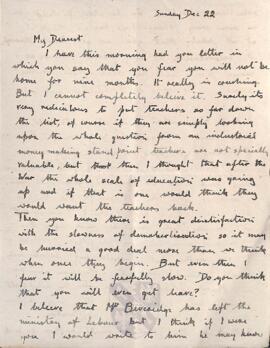 Sunday Dec 22
My Dearest
I have this morning had you letter in
which you say that you fear you will not be
home for nine months. It really is crushing.
But I cannot completely beleive it. Surely its
very rediculous to put teachers so far down
the list, of course if they are simply looking
upon the whole question from an industrial
money making stand point teachers are not specially
valuable but then I thought that after the
War the whole scale of education was going
up and if that is one would think they
would want the teachers back.
Then you know there is great dissatisfaction
with the slowness of demobilisation so it may
be hurried a good deal more than we think
when once they begin. But even then I
fear it will be fearfully slow. Do you think
that you will even get leave?
I beleive that Mr Beveridge has left the
ministry of Labour but I think if I were
you I would write to him he may have